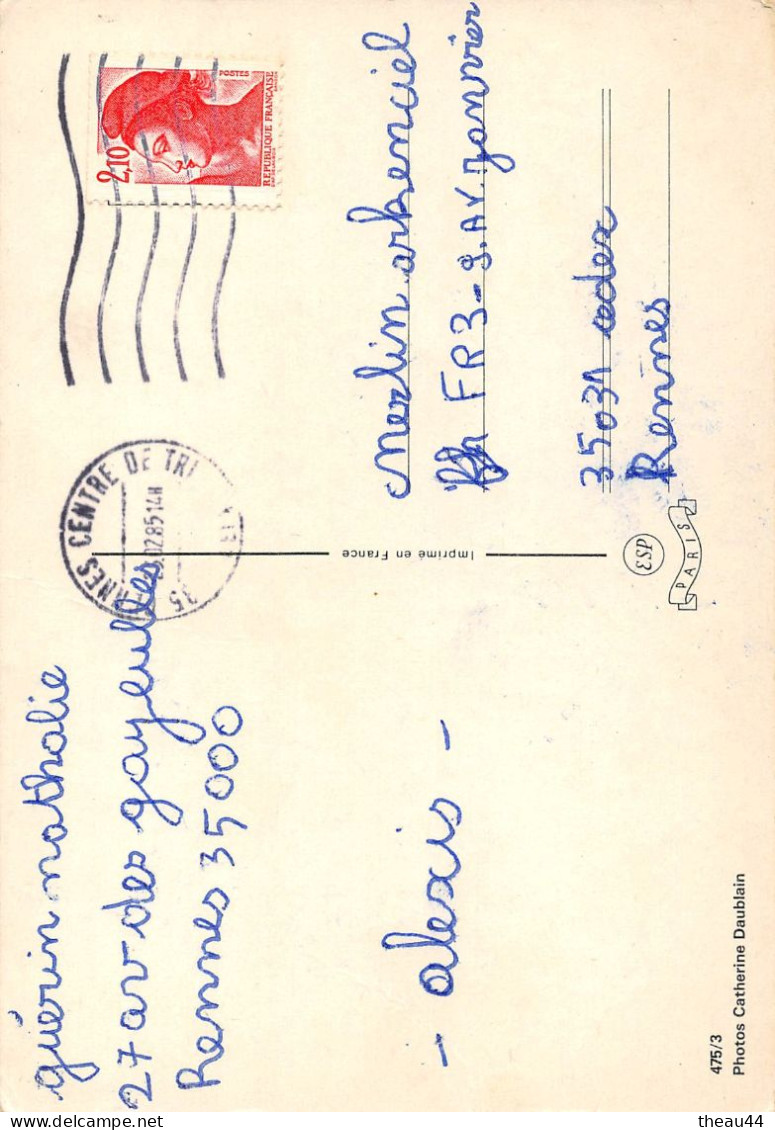 guérin nathalie
27 av des gayeulles
Rennes 35000
- alexis -
475/3
Photos Catherine Daublain
Imprimé en France
ESP
PARIS
RENNES CENTRE DE TRI
02.85 14H
35
2,10
POSTES
REPUBLIQUE FRANÇAISE
Merlin arkenciel
FR3 - 9. AV. janvier
35031 cedex
Rennes
theau44